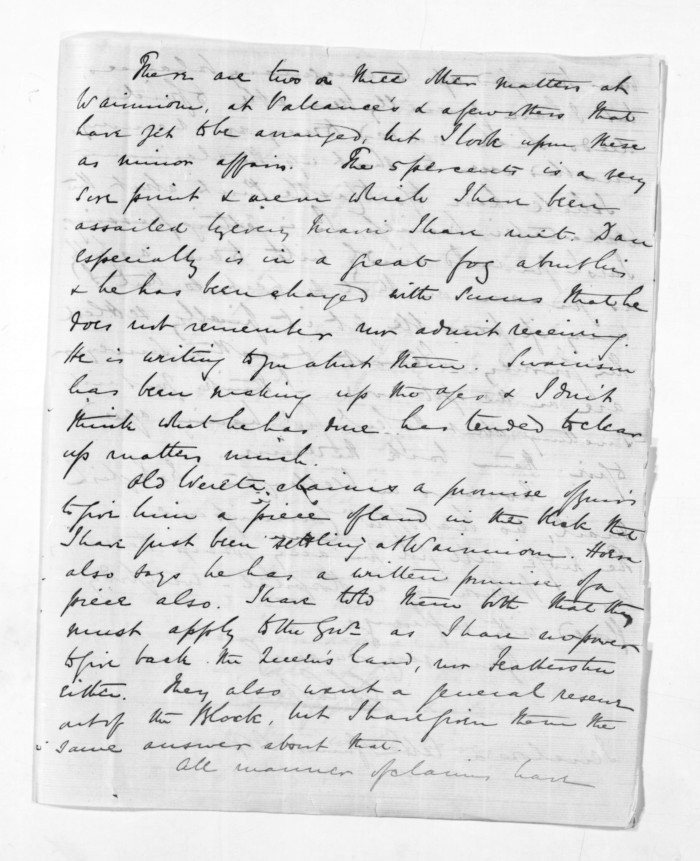 There are two or three other matters at
Wainuiom, at Vallance's & a few others that
have yet to be arranged, but I look upon these
as minor affairs. The 5 percents is a very
sore point & one on which I have been
assailed by every Maori I have met. Dan
especially is in a great fog about his
& he has been charged with sums that he
does not remember nor admit receiving.
He is writing to you about them. Swainson
has been making up the a/cs & I don't
think what he has done has tended to clear
up matters much.
Old Wereta claims a promise of yours
to give him a piece of land in the block that
I have just been settling at Wainuiom.
also says he has a written promise of a
piece also. I have told them both that they
must apply to the Govr. as I have no power
to give back the Queen's land, nor Featherston
either. They also want a general reserve
out of the Block, but I have given them the
same answer about that.
All manner of claims have